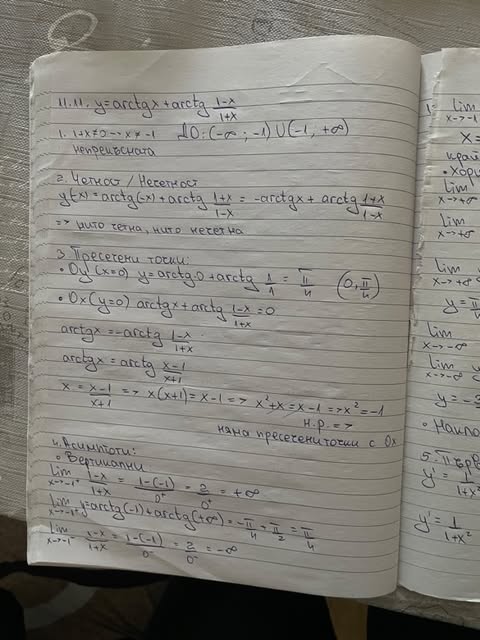 11.11. y=arctgx+arctg (1-x)/(1+x)
1. 1+x≠0 → x≠-1 ДО: (-∞; -1) U (-1, +∞)
непрекъсната
2. Четност / Нечетност
y(-x)=arctg(-x)+arctg (1+x)/(1-x) = -arctgx+arctg (1+x)/(1-x)
=> нито четна, нито нечетна
3. Пресечени точки:
• Oy (x=0) y=arctg0+arctg 1/1 = π/4 (0, π/4)
• Ox (y=0) arctgx+arctg (1-x)/(1+x)=0
arctgx=-arctg (1-x)/(1+x)
arctgx=arctg (x-1)/(x+1)
x = (x-1)/(x+1) => x(x+1)=x-1 => x²+x=x-1 => x²=-1
н.р. =>
няма пресечени точки с Ox
4. Асимптоти:
• Вертикални
lim x→-1⁺ (1-x)/(1+x) = (1-(-1))/0⁺ = 2/0⁺ = +∞
lim x→-1⁺ y=arctg(-1)+arctg(+∞)=-π/4+π/2=π/4
lim x→-1⁻ (1-x)/(1+x) = (1-(-1))/0⁻ = 2/0⁻ = -∞
lim
x→-1
x=
• Хори
lim
x→+∞
lim
x→+∞
lim
x→+∞
lim
x→-∞
lim
x→-∞
• Накло
y'=1/(1+x²)
y'=1/(1+x²)